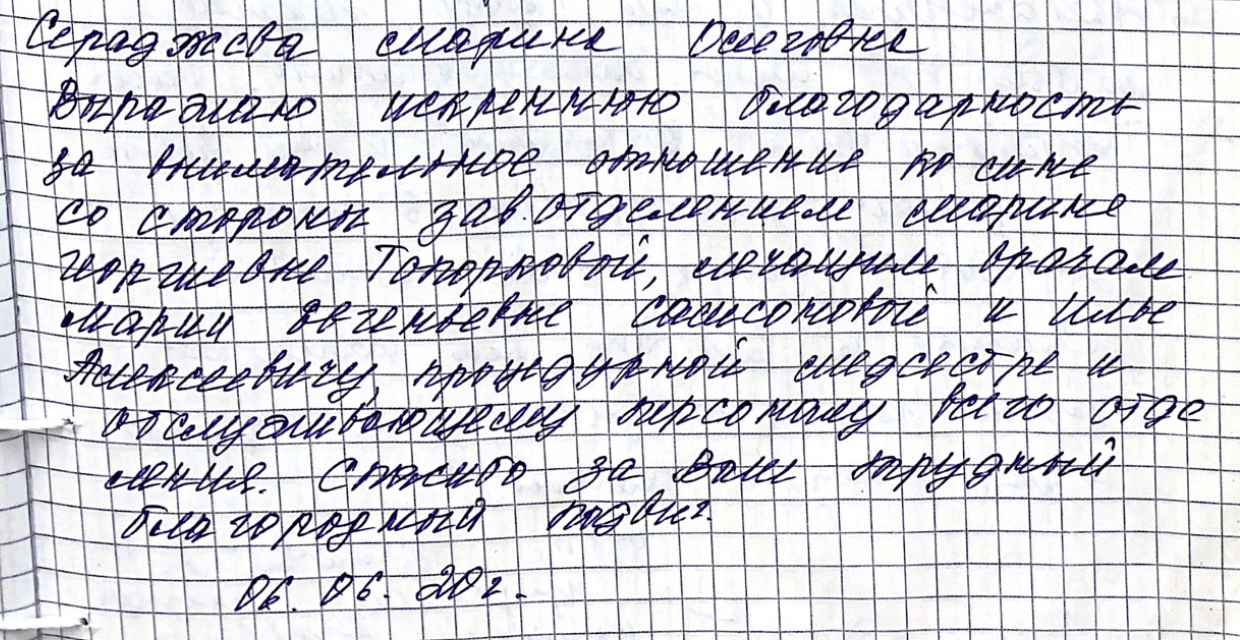 Сераджева Марина Олеговна
Выражаю искреннюю благодарность
за внимательное отношение ко мне
со стороны зав. отделением Марине
Георгиевне Топорковой, лечащим врачам
Марии Евгеньевне Самсоновой и Илье
Алексеевичу, процедурной медсестре и
обслуживающему персоналу всего отде
ления. Спасибо за Ваш трудный
благородный подвиг.
06.06.20г.